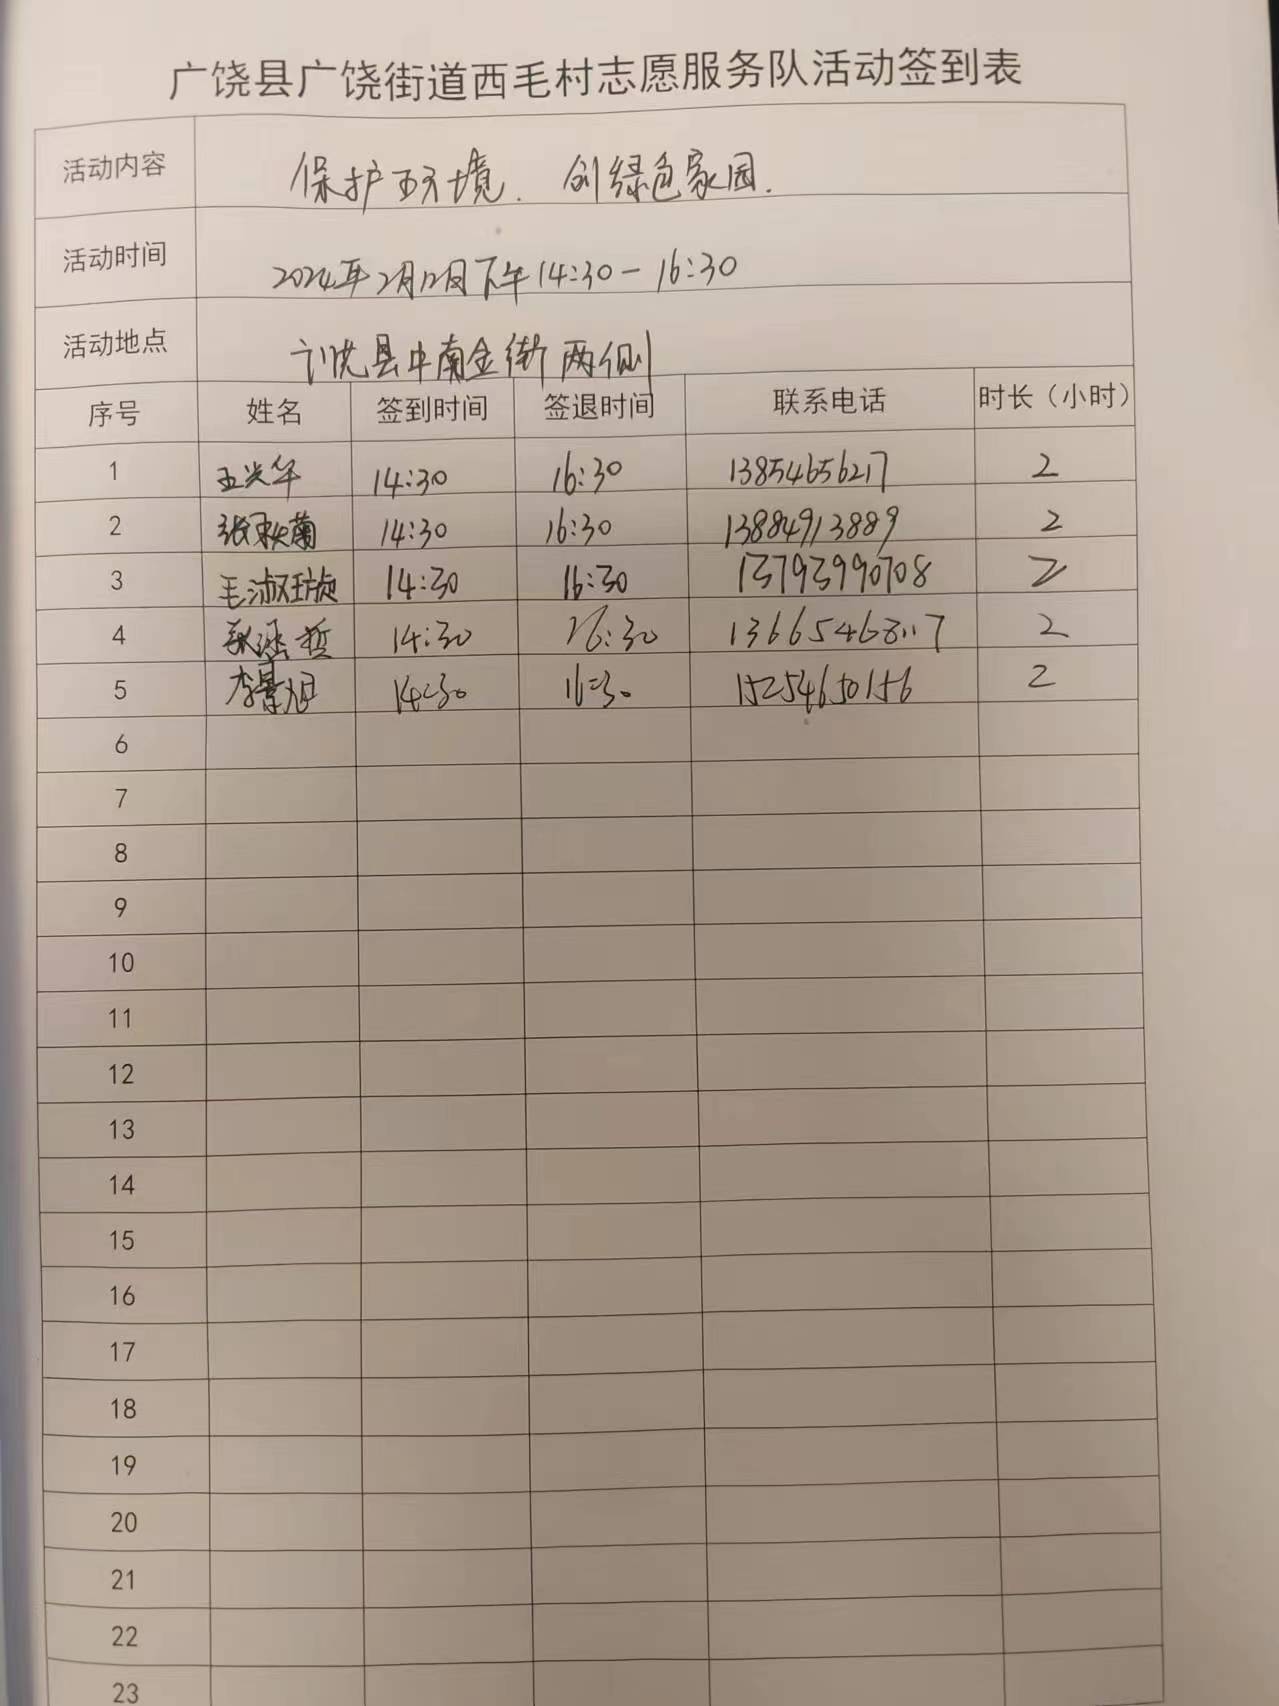 广饶县广饶街道西毛村志愿服务队活动签到表
活动内容 保护环境. 创绿色家园.
活动时间 2024年2月12日下午14:30-16:30
活动地点 县中南金街两侧
序号 姓名 签到时间 签退时间 联系电话 时长（小时）
1 王兴华 14:30 16:30 13854656217 2
2 14:30 16:30 13884913889 2
3 毛淑璇 14:30 16:30 13793990708 2
4 14:30 16:30 2
5 李景旭 14:30 16:30 15254650156 2
6
7
8
9
10
11
12
13
14
15
16
17
18
19
20
21
22
23